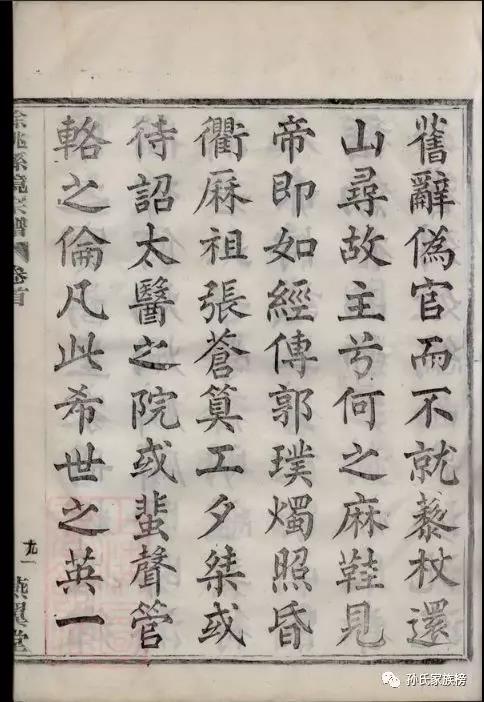 舊辭偽官而不就藜杖還
山尋故主兮何之麻鞋見
帝即如經傳郭璞燭照昏
衢厤祖張蒼筭工夕桀或
待詔太醫之院或蜚聲管
輅之倫凡此希世之英一
餘姚孫境宗譜 卷首
九一 燕翼堂
孙氏家族榜